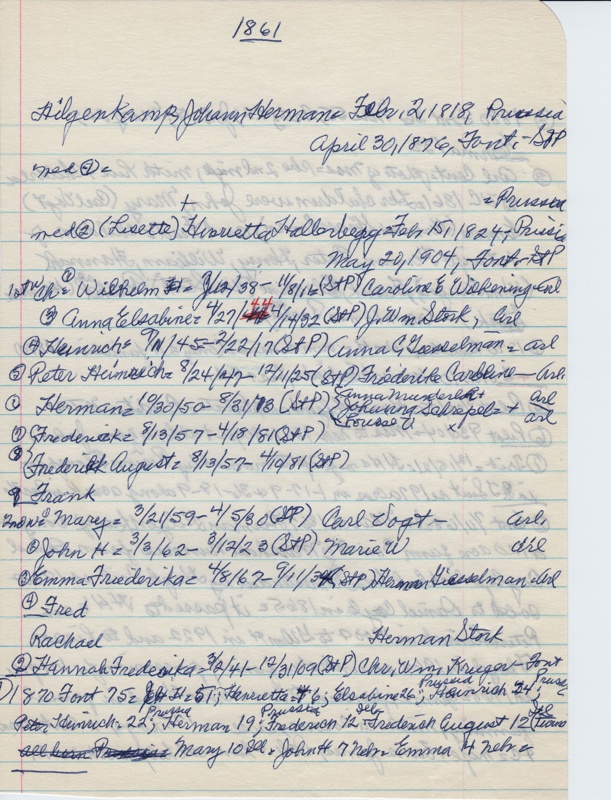 1861
Hilgenkamp, Johann Herman= Febr. 2, 1818, Prussia
April 30, 1876, Font,-StP
med ①=
+ = Prussia
med ② (Lisette) Henrietta Hallerbegg= Feb 15, 1824, Prussia
May 20, 1904, Font, StP
1st W Ch= ① Wilhelm = 9/12/38- (StP) Caroline E Wakening
③ Anna Elsabine= 4/27/44 4/14/32 (StP) J. Wm Stork, Arl
④ Heinrich= 9/11/45-2/22/17 (StP) Anna C Giesselman = arl
⑤ Peter Heinrich= 8/24/47-12/11/25 (StP) Frederike Caroline - Arl.
Herman= 10/30/50- 8/31/13 (StP) Johanna Schrepel= + Arl
Louise U arl
⑦ Frederick= 8/13/57-4/18/81 (StP)
⑧ Frederick August= 8/13/57- 4/10/81 (StP)
9 Frank
2nd W Mary= 3/21/59-4/5/30 (StP) Carl Vogt - Arl.
② John H= 3/3/62- 3/12/23 (StP) Marie W Arl
③ Emma Friederika= 4/8/67- 9/11/34 (StP) Herman Giesselman Arl
④ Fred
Rachael Herman Stork
② Hannah Frederika= 3/2/41-12/31/09 (StP) Chr. Wm. Kruger- Font
1870 Font 75= H= 51; Henrietta 46; Elsabine 26; Heinrich 24;
Prussia
Peter Heinrich= 22; Herman 19; Frederick 12= Frederick August 12
Prussia Prussia
Mary 10 Ill= John H 7 Nebr= Emma 4 Nebr=